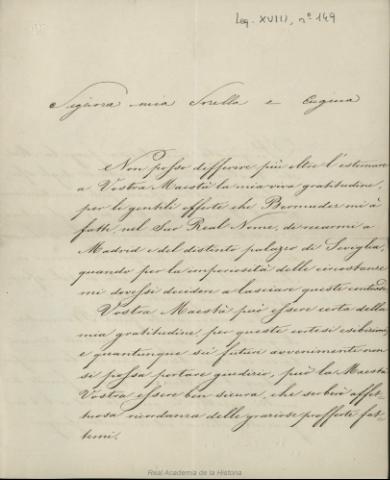 Leg. XVIII, nº 149
Signora mia Sorella e Cugina
Non posso differire più oltre l'esternare
a Vostra Maestà la mia viva gratitudine,
per le gentili offerte che Bermudez mi à
fatte, nel Suo Real Nome, di recarmi a
Madrid e del distinto palazzo di Siviglia,
quando per la imperiosità delle circostanze
mi dovessi decidere a lasciare queste contrade.
Vostra Maestà può essere certa della
mia gratitudine per queste cortesi esibizioni
e quantunque sul futuro avvenimento non
si possa portare giudizio, può la Maestà
Vostra essere ben sicura, che serberò affet-
tuosa ricordanza delle graziose profferte fat-
temi.
Real Academia de la Historia